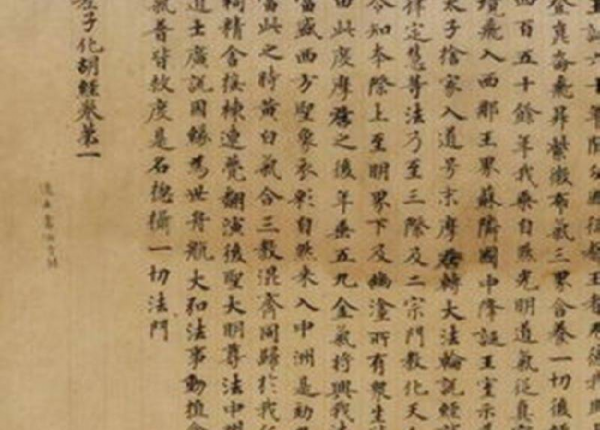 六十年間
登真飛昇紫微布氣三界含養一切後經
四百五十餘年我乘自然光明道氣從真寂
境飛入西那玉界蘇隣國中降誕王室示為
太子捨家入道号末摩尼轉大法輪說經誡
律定慧等法乃至三際及二宗門教化天人
令知本際上至明界下及幽塗所有衆生
由此度摩尼之後年垂五九金氣將興我法
當盛西方聖象衣彩自然来入中洲是効
當此之時黄白氣合三教混齊同歸於我
祠精舍接棟連甍翻演後聖大明尊法中洲
道士廣說因縁為世舟航大弘法事動植含
氣普皆救度是名揔攝一切法門
老子化胡經卷第一